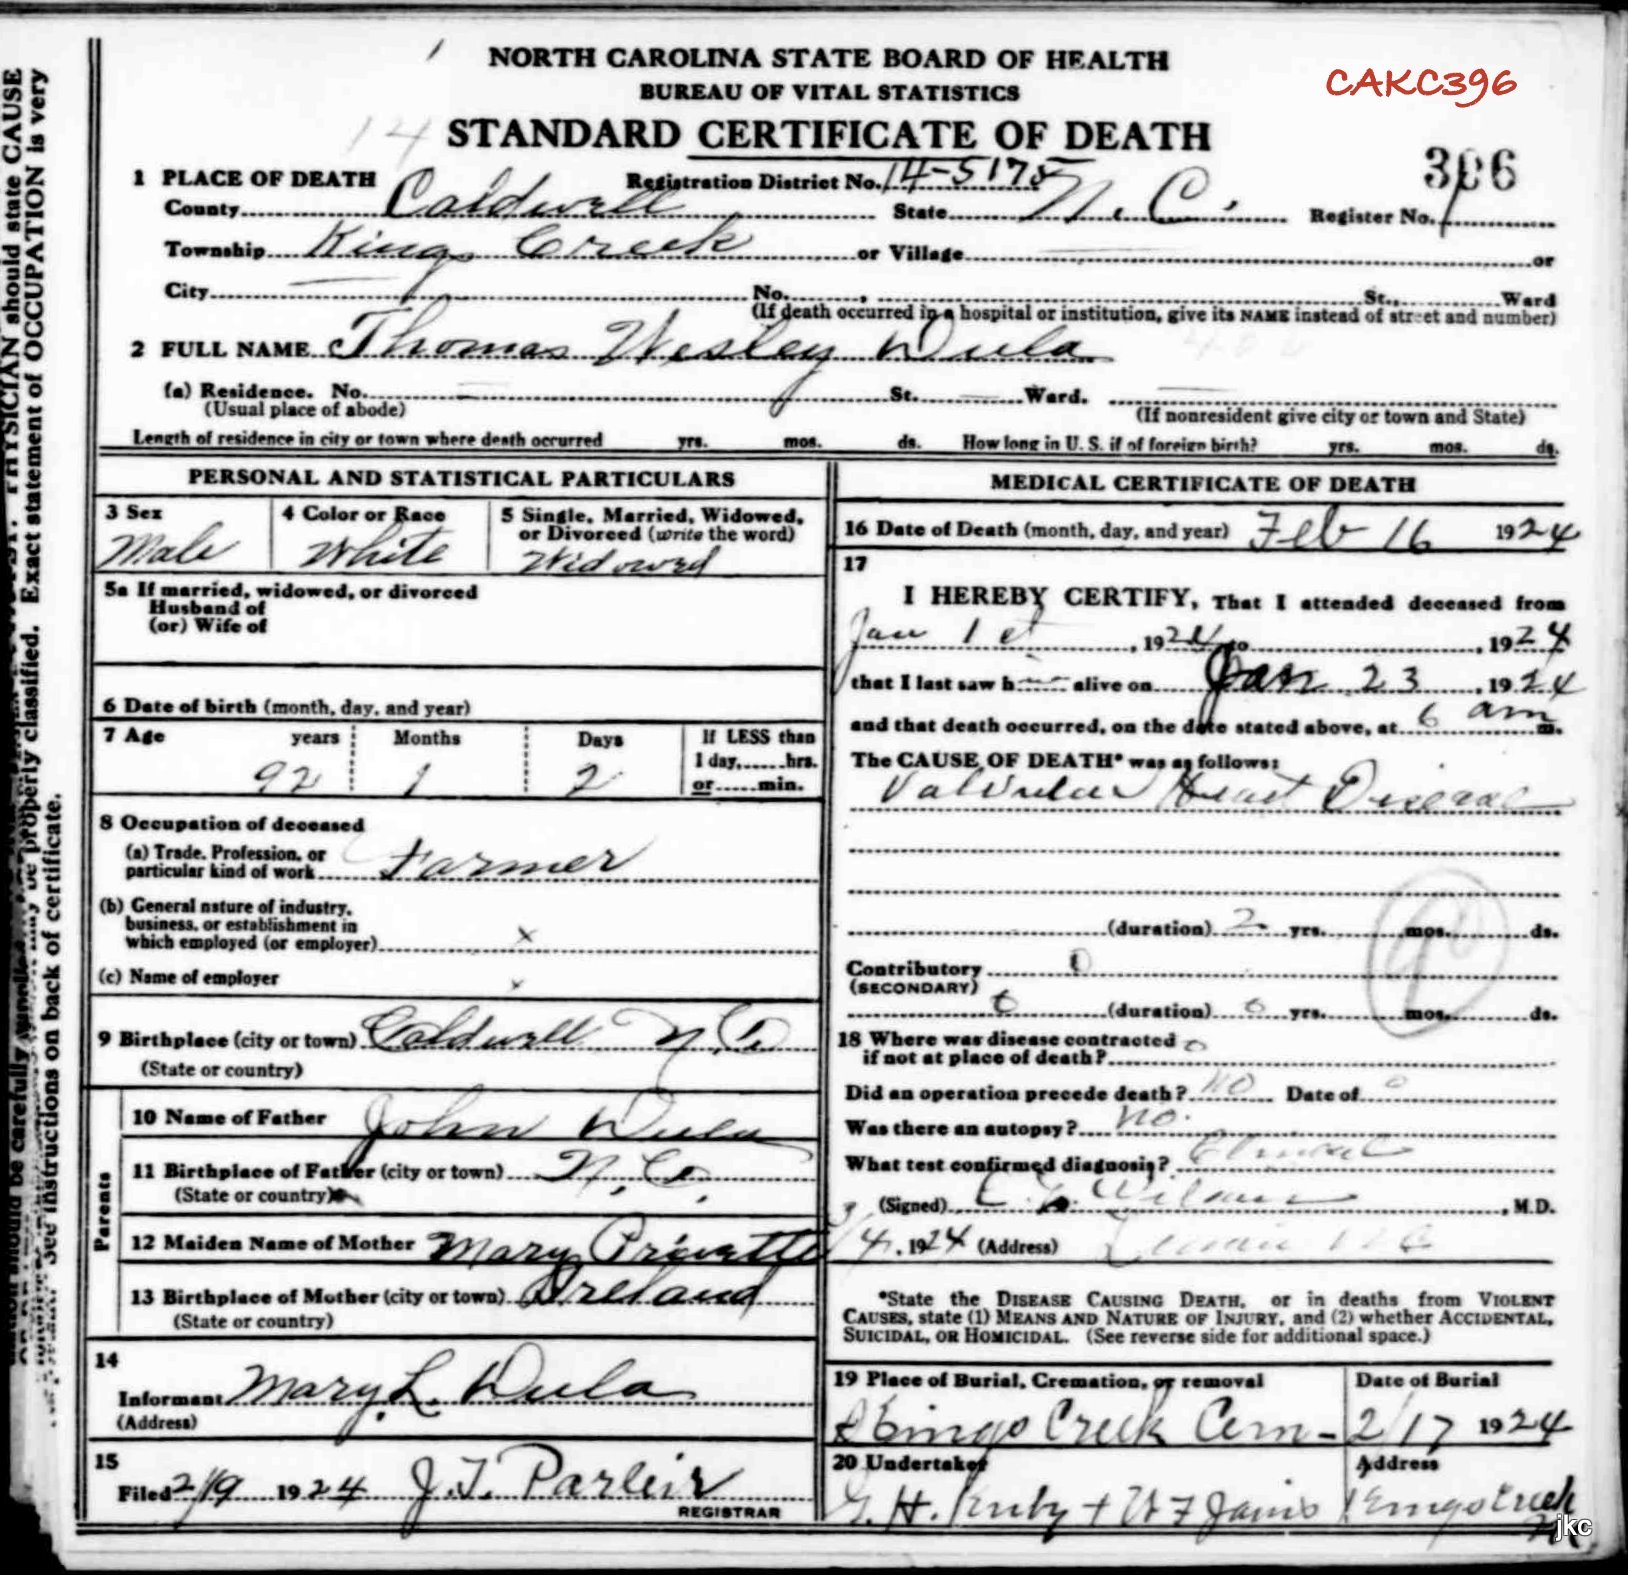 NORTH CAROLINA STATE BOARD OF HEALTH
BUREAU OF VITAL STATISTICS
CAKC396
14 STANDARD CERTIFICATE OF DEATH
306
1 PLACE OF DEATH Registration District No. 14-5175
County Caldwell State N. C. Register No.
Township Kings Creek or Village or
City No. , St., Ward
(If death occurred in a hospital or institution, give its NAME instead of street and number)
2 FULL NAME Thomas Wesley Dula
(a) Residence. No. St. Ward.
(Usual place of abode) (If nonresident give city or town and State)
Length of residence in city or town where death occurred yrs. mos. ds. How long in U. S. if of foreign birth? yrs. mos. ds.
PERSONAL AND STATISTICAL PARTICULARS
3 Sex
Male
4 Color or Race
White
5 Single, Married, Widowed,
or Divorced (write the word)
Widowed
5a If married, widowed, or divorced
Husband of
(or) Wife of
6 Date of birth (month, day, and year)
7 Age years Months Days If LESS than
1 day, hrs.
92 1 2 or min.
8 Occupation of deceased
(a) Trade, Profession, or
particular kind of work Farmer
(b) General nature of industry,
business, or establishment in
which employed (or employer) x
(c) Name of employer x
9 Birthplace (city or town) Caldwell N.C.
(State or country)
Parents
10 Name of Father John Dula
11 Birthplace of Father (city or town) N. C.
(State or country)
12 Maiden Name of Mother Mary Privette
13 Birthplace of Mother (city or town) Ireland
(State or country)
14
Informant Mary L. Dula
(Address)
15
Filed 2/19 1924 J.T. Parleir
REGISTRAR
MEDICAL CERTIFICATE OF DEATH
16 Date of Death (month, day, and year) Feb 16 1924
17
I HEREBY CERTIFY, That I attended deceased from
Jan 1st, 1924 to , 1924
that I last saw h alive on Jan 23, 1924
and that death occurred, on the date stated above, at 6 am m.
The CAUSE OF DEATH* was as follows:
Valvular Heart Disease
(duration) 2 yrs. mos. ds.
90
Contributory 0
(SECONDARY)
0 (duration) 0 yrs. mos. ds.
18 Where was disease contracted
if not at place of death? 0
Did an operation precede death? no Date of 0
Was there an autopsy? no.
What test confirmed diagnosis? Clinical
(Signed) Wilson, M.D.
3/4, 1924 (Address) Lenoir N C
*State the DISEASE CAUSING DEATH, or in deaths from VIOLENT
CAUSES, state (1) MEANS AND NATURE OF INJURY, and (2) whether ACCIDENTAL,
SUICIDAL, OR HOMICIDAL. (See reverse side for additional space.)
19 Place of Burial, Cremation, or removal
Kings Creek Cem-
Date of Burial
2/17 1924
20 Undertaker
G. H. Kirby + W F Davis
Address
Kings Creek
N.C.
jkc
PHYSICIAN should state CAUSE
Exact statement of OCCUPATION is very
be properly classified.
See instructions on back of certificate.
should be carefully supplied